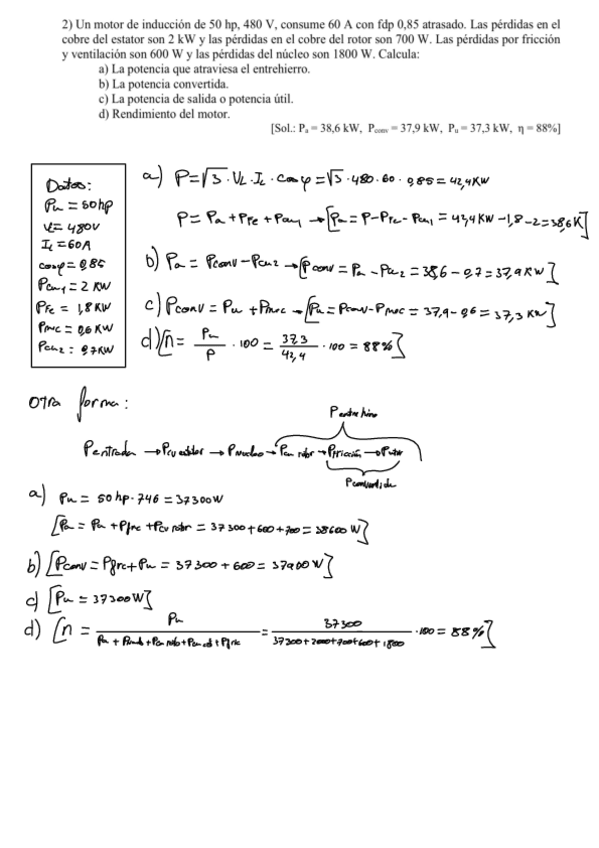 2) Un motor de inducción de 50 hp, 480 V, consume 60 A con fdp 0,85 atrasado. Las pérdidas en el
cobre del estator son 2 kW y las pérdidas en el cobre del rotor son 700 W. Las pérdidas por fricción
y ventilación son 600 W y las pérdidas del núcleo son 1800 W. Calcula:
a) La potencia que atraviesa el entrehierro.
b) La potencia convertida.
c) La potencia de salida o potencia útil.
d) Rendimiento del motor.
[Sol.: Pa = 38,6 kW, Pconv = 37,9 kW, Pu = 37,3 kW, η = 88%]
Datos:
Pu = 50hp
V = 480V
IL = 60A
cosφ = 0,85
Pcu1 = 2 KW
PFe = 1,8 KW
Pmc = 0,6 KW
Pcu2 : 0,7KW
a) P = √3 · VL · IL · cosφ = √3 · 480 · 60 · 0,85 = 42,4KW
P = Pa + PFe + Pcu1 → [Pa = P - PFe - Pcu1 = 42,4 KW - 1,8 - 2 = 38,6K]
b) Pa = Pconv - Pcu2 → [Pconv = Pa - Pcu2 = 38,6 - 0,7 = 37,9 KW]
c) Pconv = Pu + Pmec → [Pu = Pconv - Pmec = 37,9 - 0,6 = 37,3 KW]
d) [n = Pu / P · 100 = 37,3 / 42,4 · 100 = 88%]
Otra forma:
Pentrehierro
Pentrada → Pcu estator → Pnucleo → Pcu rotor → Pfricción → Putil
Pconvertida
a) Pu = 50 hp · 746 = 37300W
[Pa = Pu + Pfric + Pcu rotor = 37300 + 600 + 700 = 38600 W]
b) [Pconv = Pfric + Pu = 37300 + 600 = 37900 W]
c) [Pu = 37300W]
d) [n = Pu / Pu + Pnucl + Pcu roto + Pcu est + Pfric = 37300 / 37300 + 2000 + 700 + 600 + 1800 · 100 = 88%]